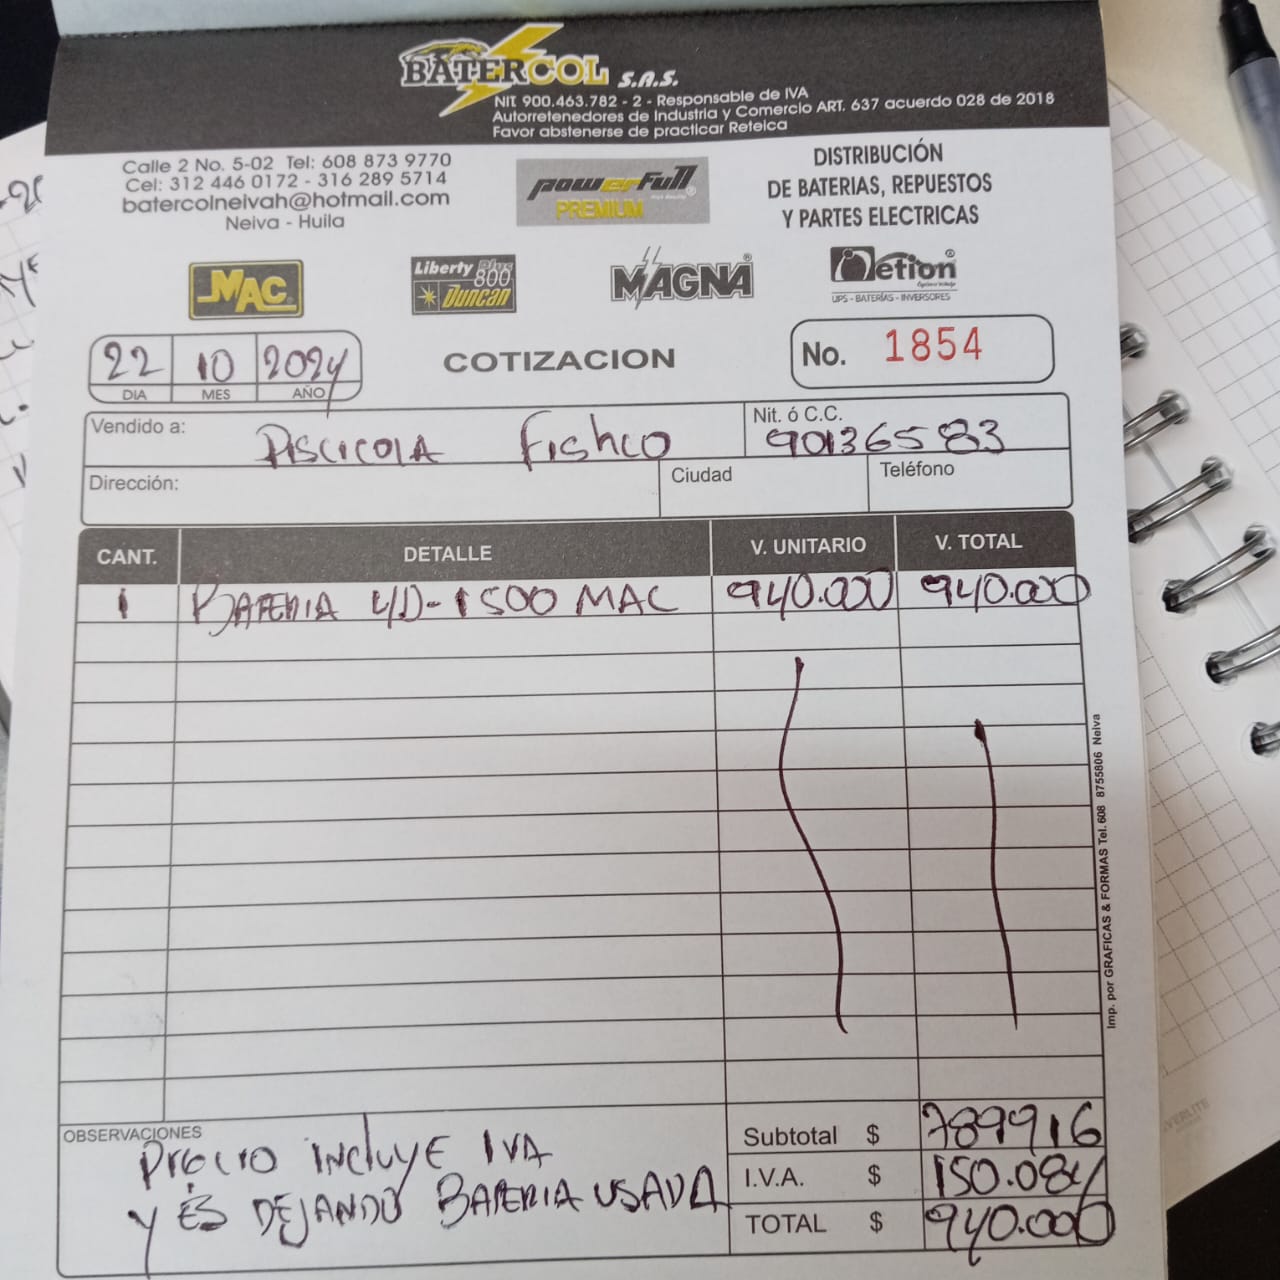 BATERCOL S.A.S.
NIT. 900.463.782 - 2 - Responsable de IVA
Autorretenedores de Industria y Comercio ART. 637 acuerdo 028 de 2018
Favor abstenerse de practicar Reteica
Calle 2 No. 5-02 Tel: 608 873 9770
Cel: 312 446 0172 - 316 289 5714
batercolneivah@hotmail.com
Neiva - Huila
powerfull
PREMIUM
DISTRIBUCIÓN
DE BATERIAS, REPUESTOS
Y PARTES ELECTRICAS
MAC
Liberty Plus 800
Duncan
MAGNA
Netion
UPS - BATERÍAS - INVERSORES
22 10 2024
DIA MES AÑO
COTIZACION
No. 1854
Vendido a: PISCICOLA FISHCO
Nit. ó C.C. 901365583
Dirección:
Ciudad
Teléfono
CANT. DETALLE V. UNITARIO V. TOTAL
1 BATERIA 4/D-1500 MAC 940.000 940.000
OBSERVACIONES
PRECIO INCLUYE IVA
Y ES DEJANDO BATERIA USADA
Subtotal $ 789916
I.V.A. $ 150.084
TOTAL $ 940.000
Imp. por GRAFICAS & FORMAS Tel. 608 8755806 Neiva